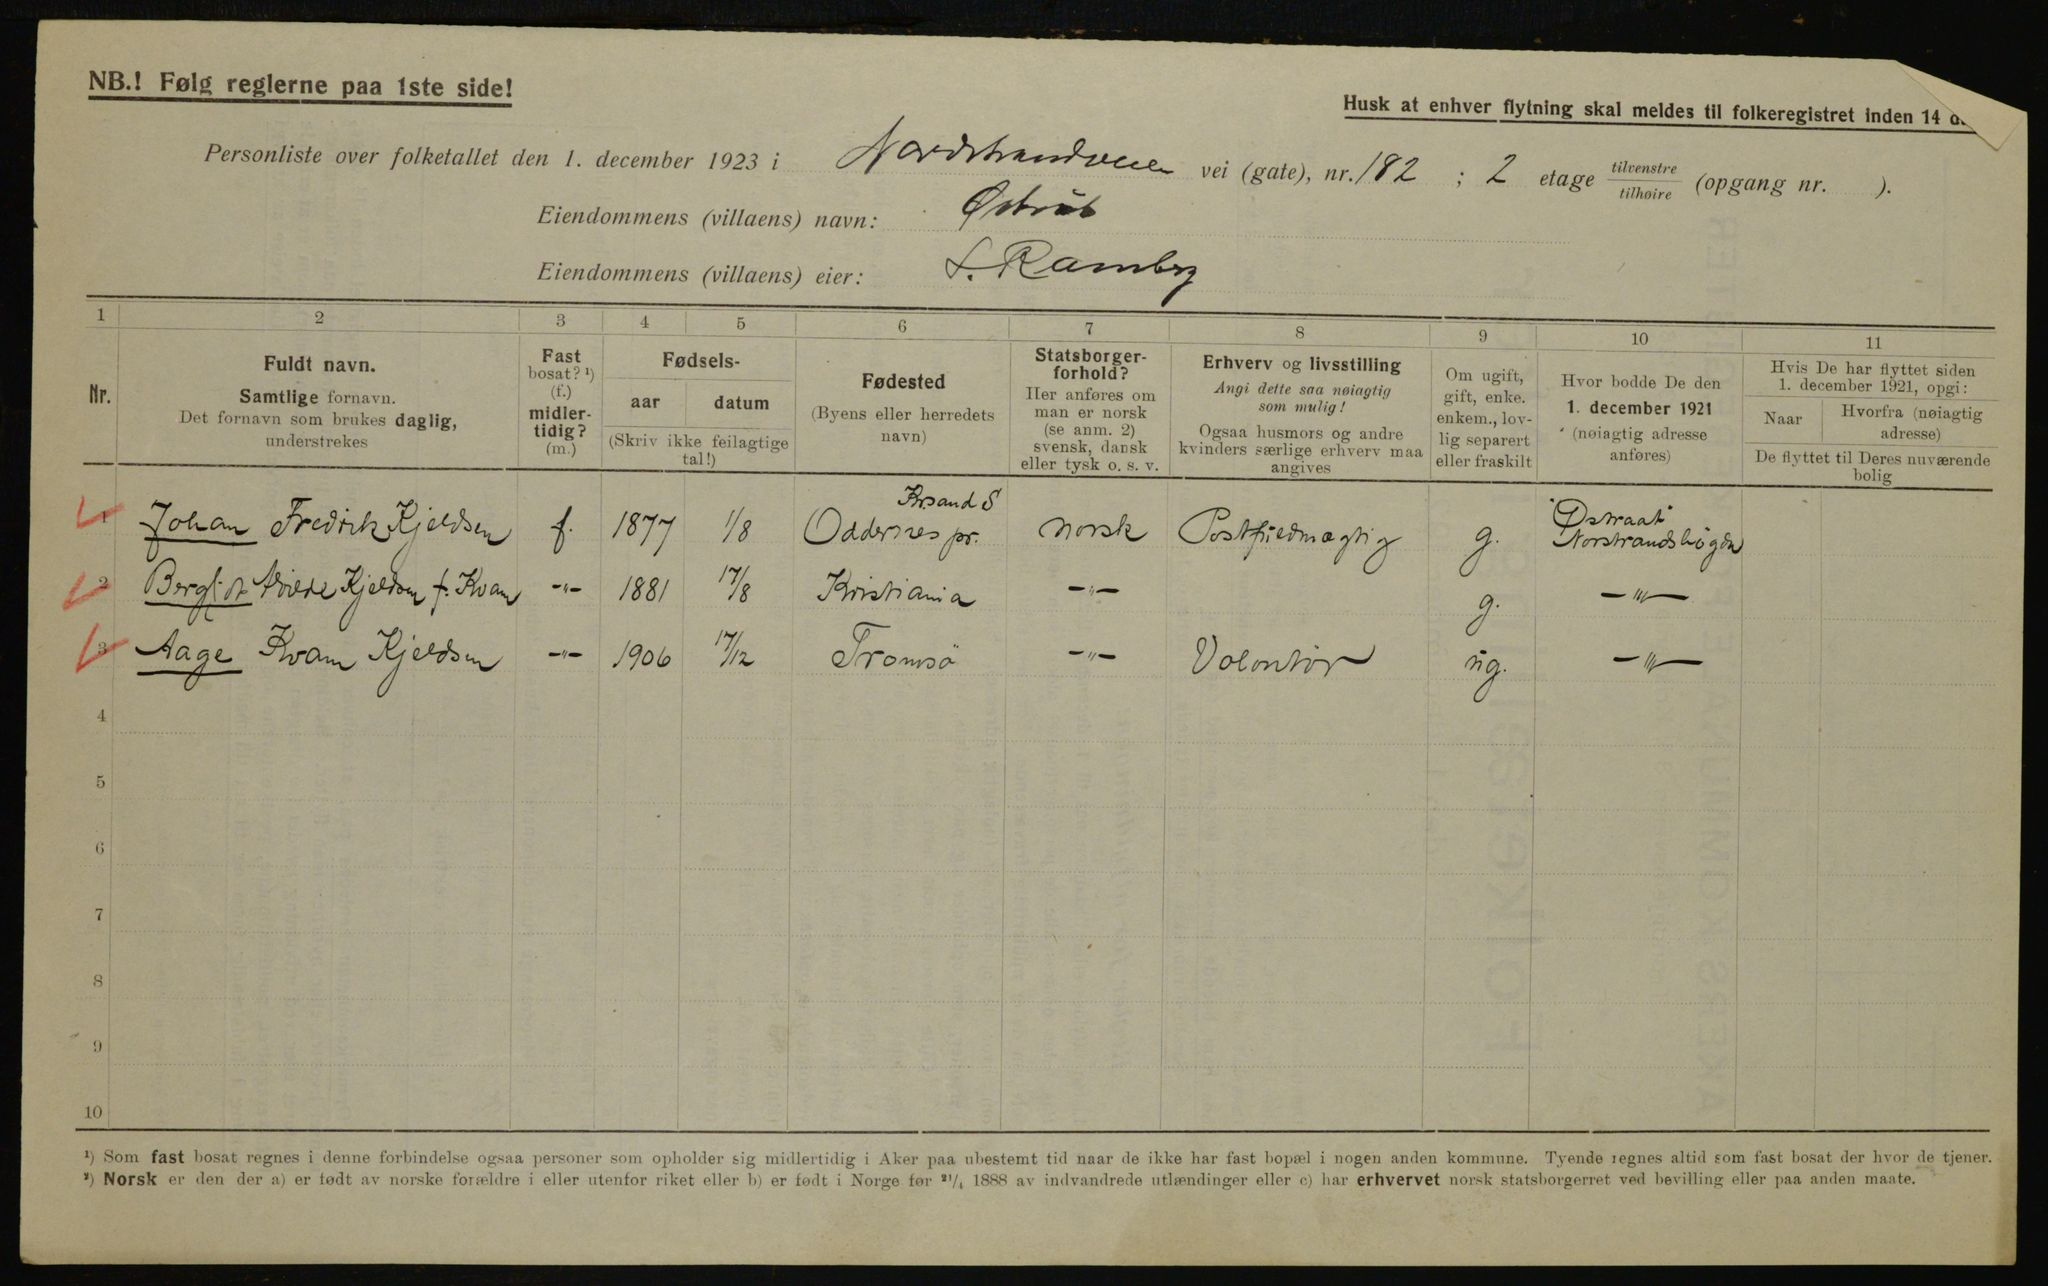 NB.! Følg reglerne paa 1ste side!
Husk at enhver flytning skal meldes til folkeregistret inden 14
Personliste over folketallet den 1. december 1923 i Nordstrandveien vei (gate), nr. 182 ; 2 etage tilvenstre tilhøire (opgang nr. ).
Eiendommens (villaens) navn:
Eiendommens (villaens) eier: S. Ramberg
1 2 3 4 5 6 7 8 9 10 11
Nr.
Fuldt navn.
Samtlige fornavn.
Det fornavn som brukes daglig,
understrekes
Fast
bosat? ¹)
(f.)
midler-
tidig?
(m.)
Fødsels-
aar datum
(Skriv ikke feilagtige
tal!)
Fødested
(Byens eller herredets
navn)
Statsborger-
forhold?
Her anføres om
man er norsk
(se anm. 2)
svensk, dansk
eller tysk o. s. v.
Erhverv og livsstilling
Angi dette saa nøiagtig
som mulig!
Ogsaa husmors og andre
kvinders særlige erhverv maa
angives
Om ugift,
gift, enke.
enkem., lov-
lig separert
eller fraskilt
Hvor bodde De den
1. december 1921
(nøiagtig adresse
anføres)
Hvis De har flyttet siden
1. december 1921, opgi:
Naar Hvorfra (nøiagtig
adresse)
De flyttet til Deres nuværende
bolig
1 Johan Fredrik Kjeldsen f. 1877 1/8 Krsand S Oddernes pr. norsk Postfuldmægtig g. "Østraat" Norstrandshøgda
2 Bergliot Kjeldsen f. Kvam -"- 1881 17/8 Kristiania -"- g. -"-
3 Aage Kvam Kjeldsen -"- 1906 17/12 Tromsö -"- Volontør ug. -"-
4
5
6
7
8
9
10
¹) Som fast bosat regnes i denne forbindelse ogsaa personer som opholder sig midlertidig i Aker paa ubestemt tid naar de ikke har fast bopæl i nogen anden kommune. Tyende regnes altid som fast bosat der hvor de tjener.
²) Norsk er den der a) er født av norske forældre i eller utenfor riket eller b) er født i Norge før ²¹/₄ 1888 av indvandrede utlændinger eller c) har erhvervet norsk statsborgerret ved bevilling eller paa anden maate.